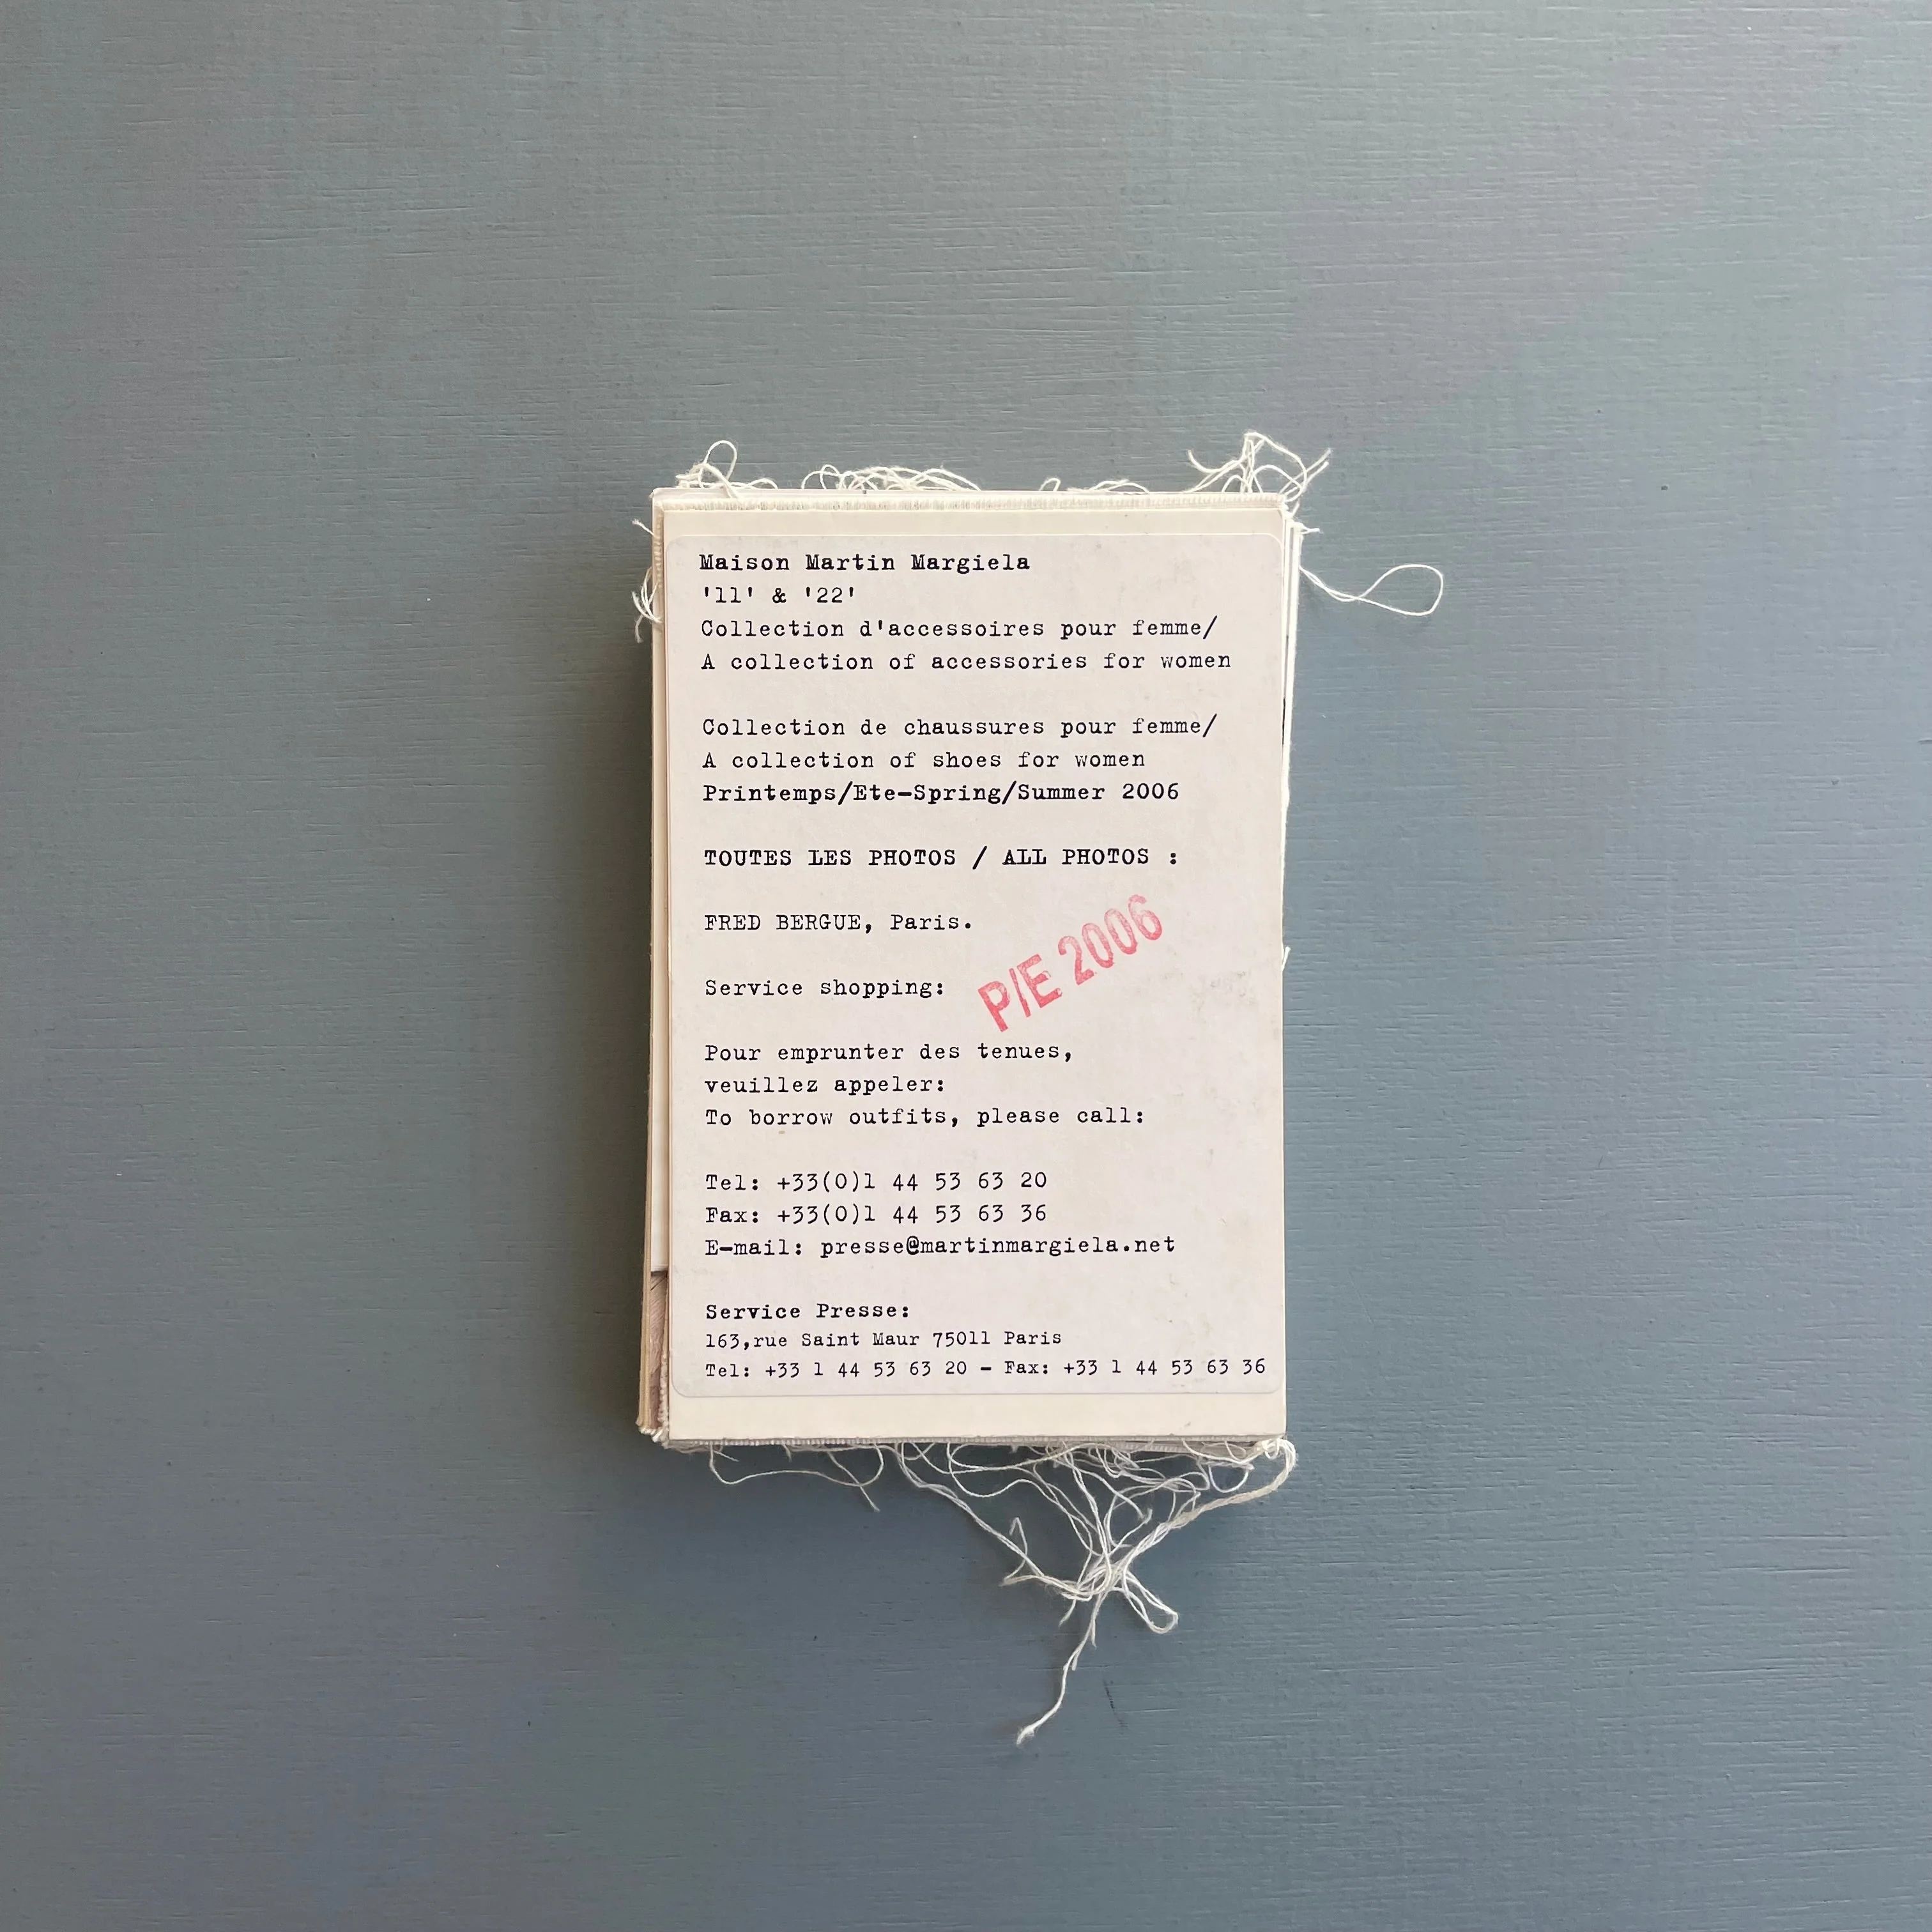 Maison Martin Margiela
'11' & '22'
Collection d'accessoires pour femme/
A collection of accessories for women
Collection de chaussures pour femme/
A collection of shoes for women
Printemps/Ete-Spring/Summer 2006
TOUTES LES PHOTOS / ALL PHOTOS :
FRED BERGUE, Paris.
P/E 2006
Service shopping:
Pour emprunter des tenues,
veuillez appeler:
To borrow outfits, please call:
Tel: +33(0)1 44 53 63 20
Fax: +33(0)1 44 53 63 36
E-mail: presse@martinmargiela.net
Service Presse:
163,rue Saint Maur 75011 Paris
Tel: +33 1 44 53 63 20 - Fax: +33 1 44 53 63 36